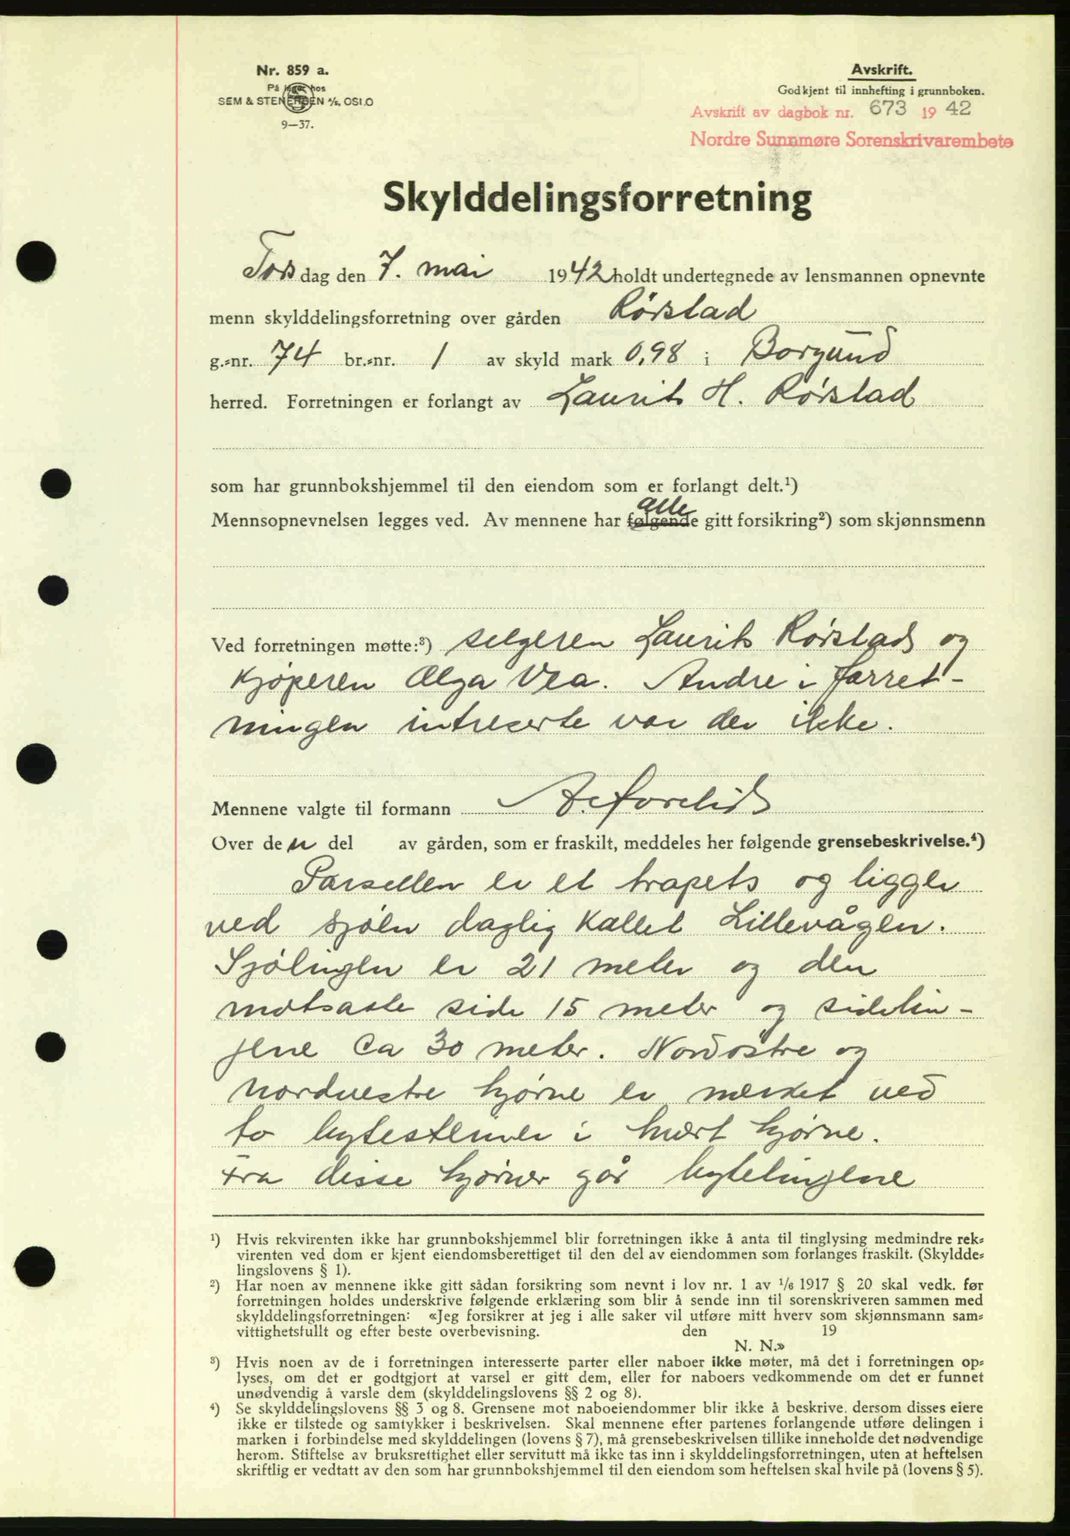 Nr. 859 a.
På lager hos
SEM & STENERSEN A/S, OSLO
9—37.
Avskrift.
Godkjent til innhefting i grunnboken.
Avskrift av dagbok nr. 673 1942
Nordre Sunnmøre Sorenskrivarembete
Skylddelingsforretning
Tors dag den 7. mai 1942 holdt undertegnede av lensmannen opnevnte
menn skylddelingsforretning over gården Rørstad
g.-nr. 74 br.-nr. 1 av skyld mark 0,98 i Borgund
herred. Forretningen er forlangt av Laurits H. Rørstad
som har grunnbokshjemmel til den eiendom som er forlangt delt.¹)
alle
Mennsopnevnelsen legges ved. Av mennene har følgende gitt forsikring²) som skjønnsmenn
Ved forretningen møtte:³) selgeren Laurits Rørstad og
kjøperen Olga Vea. Andre i forret-
ningen intreserte var der ikke.
Mennene valgte til formann
Over den del av gården, som er fraskilt, meddeles her følgende grensebeskrivelse.⁴)
Parsellen er et trapets og ligger
ved sjøen daglig kallet Lillevågen.
Sjølinjen er 21 meter og den
motsatte side 15 meter og sidelin-
jene ca 30 meter. Nordøstre og
nordvestre hjørne er merket ved
to bytesteiner i hvert hjørne.
Fra disse hjørner går bytelinjene
¹) Hvis rekvirenten ikke har grunnbokshjemmel blir forretningen ikke å anta til tinglysing medmindre rek-
virenten ved dom er kjent eiendomsberettiget til den del av eiendommen som forlanges fraskilt. (Skyldde-
lingslovens § 1).
²) Har noen av mennene ikke gitt sådan forsikring som nevnt i lov nr. 1 av 1/6 1917 § 20 skal vedk. før
forretningen holdes underskrive følgende erklæring som blir å sende inn til sorenskriveren sammen med
skylddelingsforretningen: «Jeg forsikrer at jeg i alle saker vil utføre mitt hverv som skjønnsmann sam-
vittighetsfullt og efter beste overbevisning. den 19
N. N.»
³) Hvis noen av de i forretningen interesserte parter eller naboer ikke møter, må det i forretningen op-
lyses, om det er godtgjort at varsel er gitt dem, eller for naboers vedkommende om det er funnet
unødvendig å varsle dem (skylddelingslovens §§ 2 og 8).
⁴) Se skylddelingslovens §§ 3 og 8. Grensene mot naboeiendommer blir ikke å beskrive, dersom disses eiere
ikke er tilstede og samtykker i beskrivelsen. Skal mennene efter partenes forlangende utføre delingen i
marken i forbindelse med skylddelingen (lovens § 7), må grensebeskrivelsen tillike inneholde det nødvendige
herom. Stiftelse av bruksrettighet eller servitutt må ikke tas inn i skylddelingsforretningen, uten at heftelsen
skriftlig er vedtatt av den som har grunnbokshjemmel til den eiendom som heftelsen skal hvile på (lovens § 5).